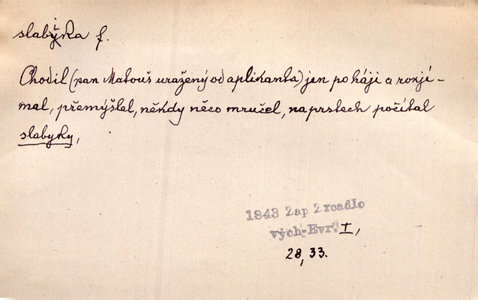 slabika f.
Chodil (pan Matouš uražený od aplikanta) jen po háji a rozjí-
mal, přemýšlel, někdy něco mručel, na prstech počítal
slabyky,
1843 Zap Zrcadlo
vých. Evr. I,
28, 33.